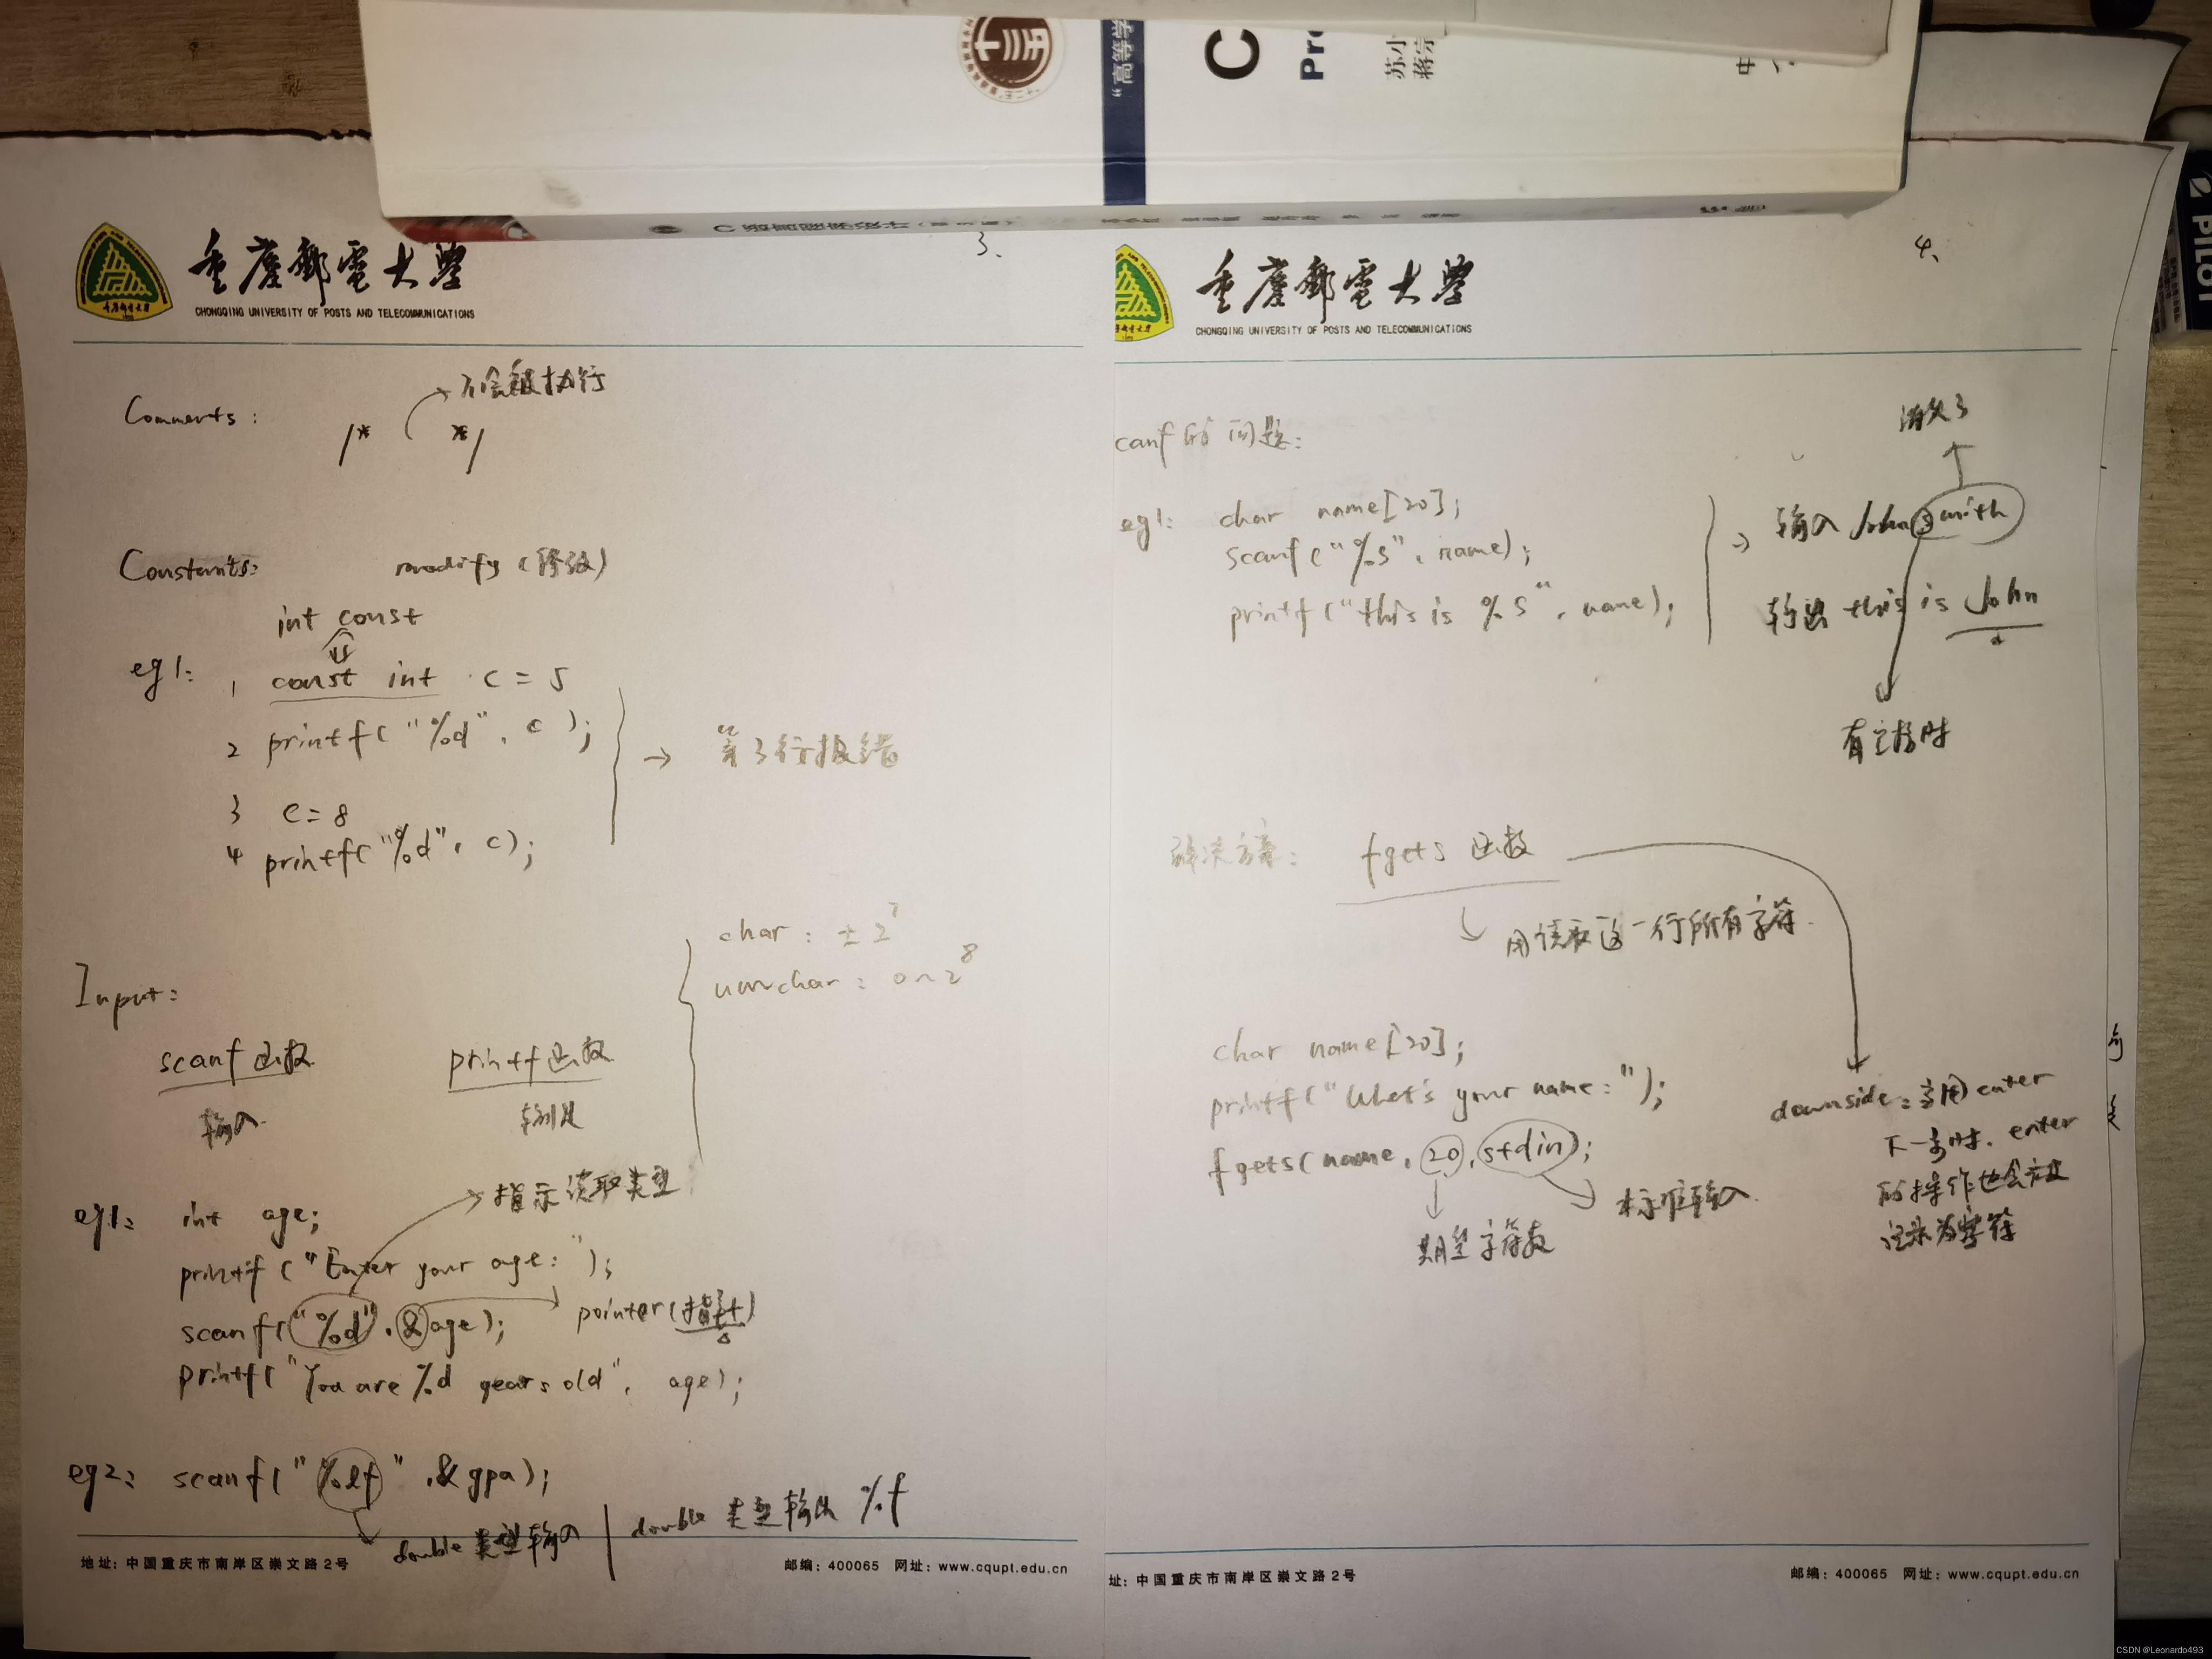 C
Pro
苏小
蒋宗
中
PILOT
3、
重慶郵電大學
CHONGQING UNIVERSITY OF POSTS AND TELECOMMUNICATIONS
Comments:
/* */
不会被执行
Constants:
modify (修改)
int const
eg1:
1 const int c = 5
2 printf("%d", c );
3 c=8
4 printf("%d", c);
→ 第3行报错
Input:
char: ±2⁷
0~2⁸
scanf函数
printf函数
输入
输出
指示读取类型
eg1: int age;
printf ("Enter your age: ");
scanf("%d", &age);
pointer(指针)
printf("You are %d years old", age);
eg2: scanf("%lf", &gpa);
double 类型输入 | double 类型输出 %f
地址: 中国重庆市南岸区崇文路2号
邮编: 400065 网址: www.cqupt.edu.cn
4、
重慶郵電大學
CHONGQING UNIVERSITY OF POSTS AND TELECOMMUNICATIONS
canf的问题:
消失了
eg1: char name[20];
scanf("%s", name);
printf("this is %s", name);
→ 输入 John smith
输出 this is John
有空格时
解决方案: fgets 函数
用读取这一行所有字符.
char name[20];
printf("What's your name:");
fgets(name, 20, stdin);
期望字符数
标准输入
downside: 敲 enter
下一步时, enter
的操作也会被
记录为字符
址: 中国重庆市南岸区崇文路2号
邮编: 400065 网址: www.cqupt.edu.cn
CSDN @Leonardo493